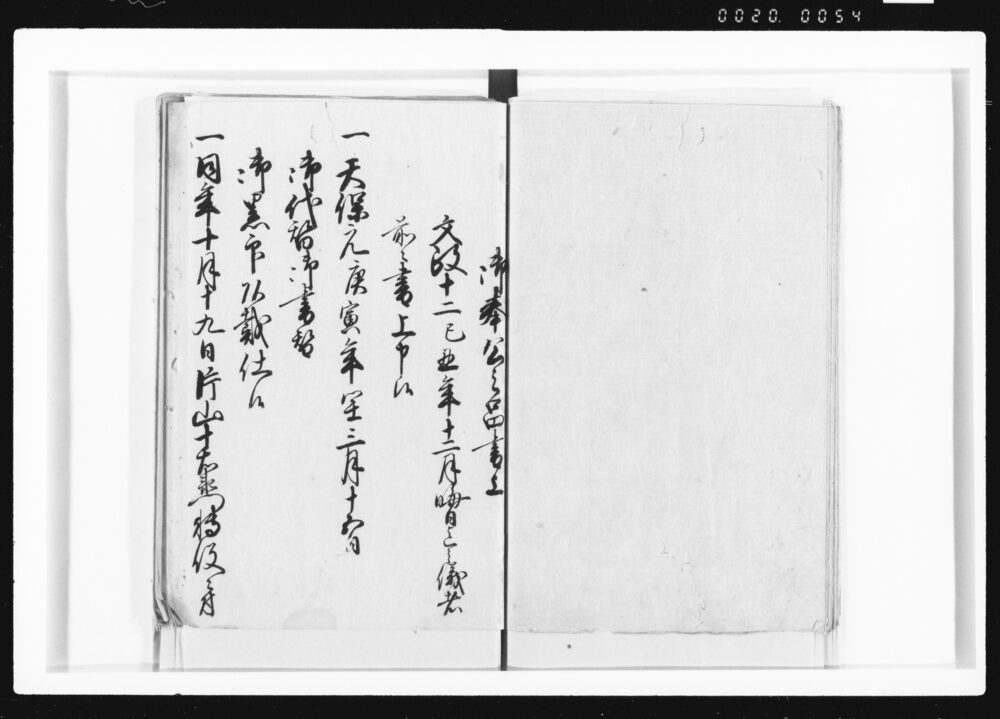 0020.0054
御奉公之品書上
文政十二己丑年十二月晦日迄之儀者
前々書上申候
一天保元庚寅年閏三月十五日
御代替御書替
御黒印頂戴仕候
一同年十月十九日片山十右衛門